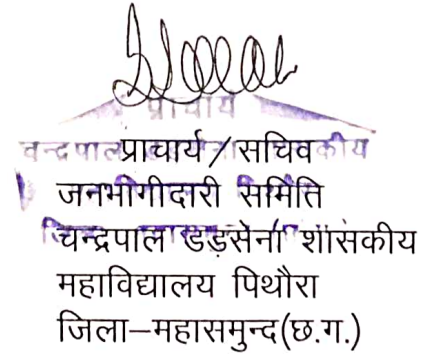 प्राचार्य
प्राचार्य/सचिव
जनभीगीदारी समिति
चन्द्रपाल डड़सेना शासकीय
महाविद्यालय पिथौरा
जिला–महासमुन्द(छ.ग.)